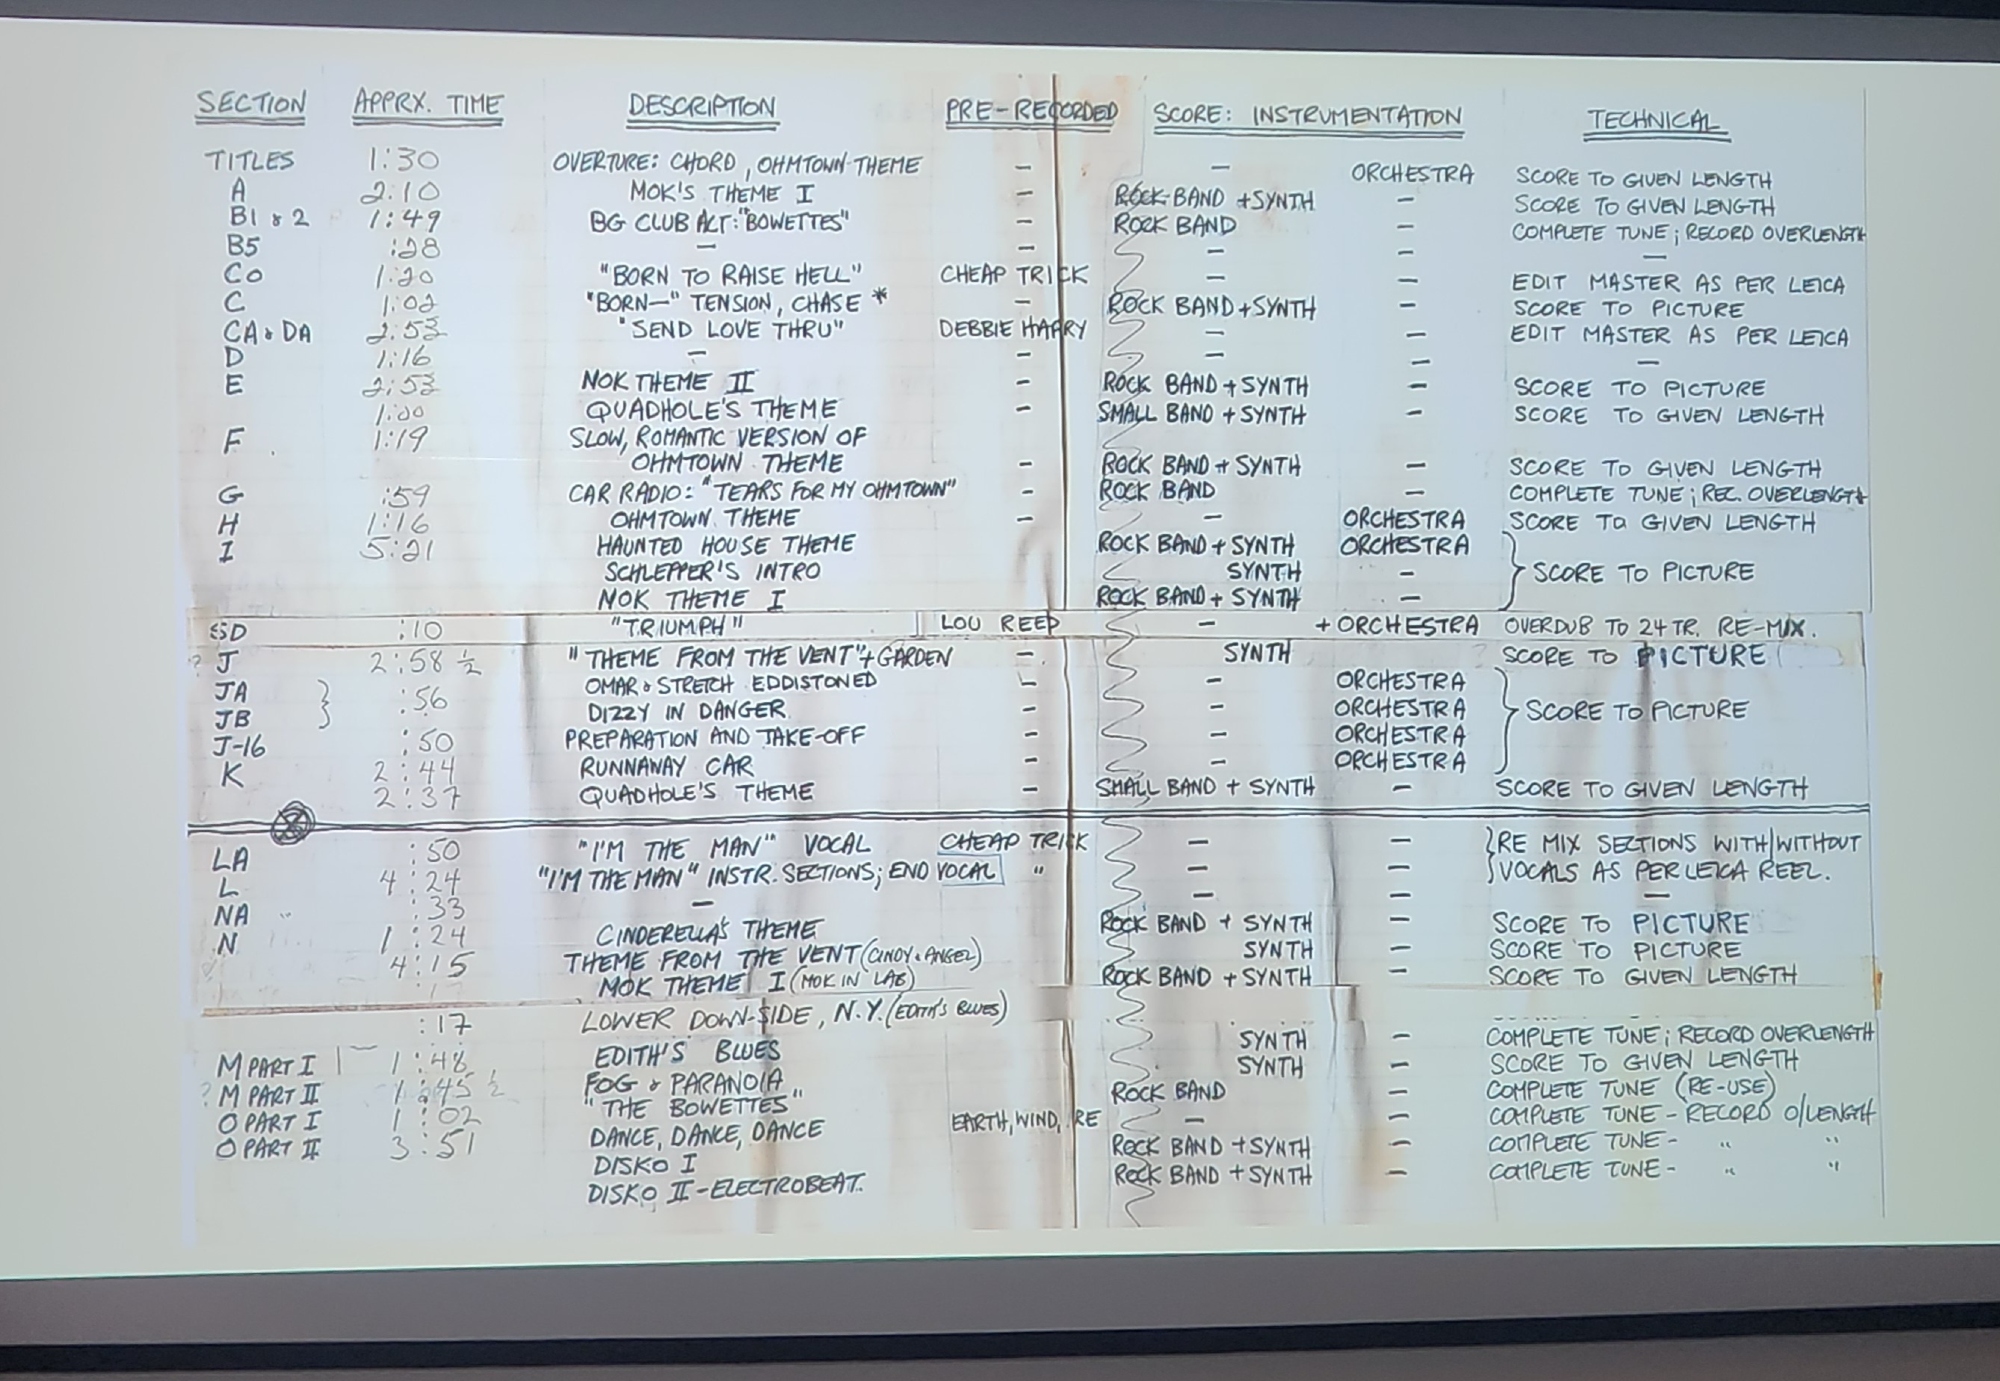 SECTION APPRX. TIME DESCRIPTION PRE-RECORDED SCORE: INSTRUMENTATION TECHNICAL
TITLES 1:30 OVERTURE: CHORD, OHMTOWN THEME – – ORCHESTRA SCORE TO GIVEN LENGTH
A 2:10 MOK'S THEME I – ROCK BAND + SYNTH – SCORE TO GIVEN LENGTH
B1 & 2 1:49 BG CLUB ACT: "BOWETTES" – ROCK BAND – COMPLETE TUNE; RECORD OVERLENGTH
B5 :28 – – – –
CO 1:20 "BORN TO RAISE HELL" CHEAP TRICK – – EDIT MASTER AS PER LEICA
C 1:02 "BORN—" TENSION, CHASE * – ROCK BAND + SYNTH – SCORE TO PICTURE
CA & DA 2:53 "SEND LOVE THRU" DEBBIE HARRY – – EDIT MASTER AS PER LEICA
D 1:16 – – – – –
E 2:53 MOK THEME II – ROCK BAND + SYNTH – SCORE TO PICTURE
1:00 QUADHOLE'S THEME – SMALL BAND + SYNTH – SCORE TO GIVEN LENGTH
F 1:19 SLOW, ROMANTIC VERSION OF
OHMTOWN THEME – ROCK BAND + SYNTH – SCORE TO GIVEN LENGTH
G :59 CAR RADIO: "TEARS FOR MY OHMTOWN" – ROCK BAND – COMPLETE TUNE; REC. OVERLENGTH
H 1:16 OHMTOWN THEME – – ORCHESTRA SCORE TO GIVEN LENGTH
I 5:21 HAUNTED HOUSE THEME ROCK BAND + SYNTH ORCHESTRA
SCHLEPPER'S INTRO SYNTH – SCORE TO PICTURE
MOK THEME I ROCK BAND + SYNTH –
SD :10 "TRIUMPH" LOU REED – + ORCHESTRA OVERDUB TO 24 TR. RE-MIX.
? J 2:58 ½ "THEME FROM THE VENT" + GARDEN – SYNTH SCORE TO PICTURE
JA :56 OMAR & STRETCH EDDISTONED – – ORCHESTRA
JB DIZZY IN DANGER – – ORCHESTRA SCORE TO PICTURE
J-16 :50 PREPARATION AND TAKE-OFF – – ORCHESTRA
K 2:44 RUNNAWAY CAR – – ORCHESTRA
2:37 QUADHOLE'S THEME – SMALL BAND + SYNTH – SCORE TO GIVEN LENGTH
LA :50 "I'M THE MAN" VOCAL CHEAP TRICK – – RE MIX SECTIONS WITH/WITHOUT
L 4:24 "I'M THE MAN" INSTR. SECTIONS; END VOCAL " – – VOCALS AS PER LEICA REEL.
NA :33 – – – –
N 1:24 CINDERELLA'S THEME ROCK BAND + SYNTH – SCORE TO PICTURE
4:15 THEME FROM THE VENT (CINDY & ANGEL) SYNTH – SCORE TO PICTURE
MOK THEME I (MOK IN LAB) ROCK BAND + SYNTH – SCORE TO GIVEN LENGTH
:17 LOWER DOWN-SIDE, N.Y. (EDITH'S BLUES)
M PART I 1:48 EDITH'S BLUES SYNTH – COMPLETE TUNE; RECORD OVERLENGTH
? M PART II 1:45 ½ FOG & PARANOIA SYNTH – SCORE TO GIVEN LENGTH
O PART I 1:02 "THE BOWETTES" ROCK BAND – COMPLETE TUNE (RE-USE)
O PART II 3:51 DANCE, DANCE, DANCE EARTH, WIND, RE – – COMPLETE TUNE – RECORD O/LENGTH
DISKO I ROCK BAND + SYNTH – COMPLETE TUNE – " "
DISKO II – ELECTROBEAT. ROCK BAND + SYNTH – COMPLETE TUNE – " "